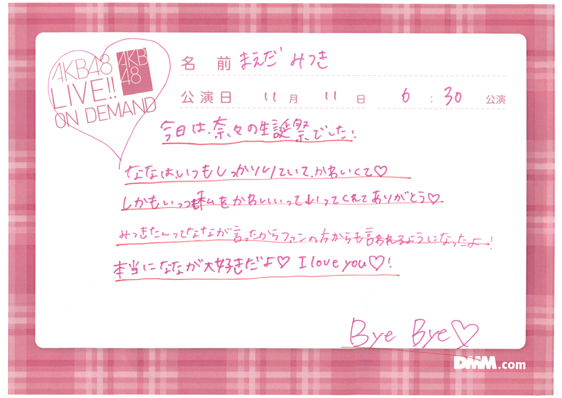 AKB48
LIVE!!
ON DEMAND
AKB
48
名前 まえだ みつき
公演日 11月 11日 6:30 公演
今日は、奈々の生誕祭でした!
ななはいつもしっかりしていて、かわいくて♡
しかもいっつも私をかわいいって言ってくれてありがとう♡
みつきたんってななが言ったからファンの方からも言われるようになったよー!
本当にななが大好きだよ♡ I love you♡!
Bye Bye♡
DMM.com